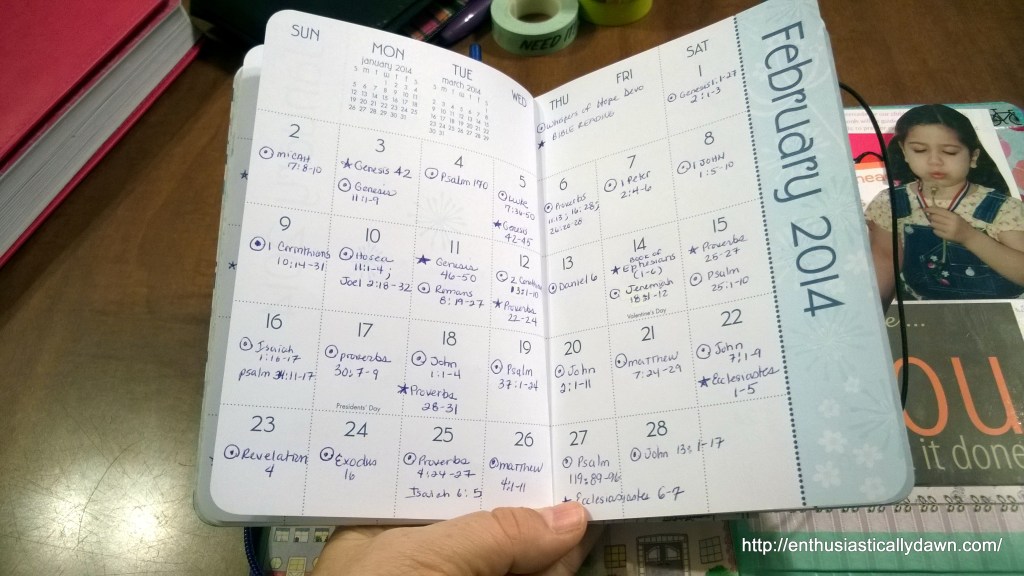 SUN
MON
TUE
WED
THU
FRI
SAT
February 2014
january 2014
march 2014
Whispers of Hope Devo
★ BIBLE READING
1
Genesis 1:1-27
2:1-3
2
micAH
7:8-10
3
★ Genesis 42
Genesis
11:1-9
4
Psalm 170
5
Luke
7:36-50
★ Genesis
42-45
6
Proverbs
11:13; 16:28;
26:20-28
7
1 Peter
2:4-6
8
1 JOHN
1:5-10
9
1 Corinthians
10:14-31
10
Hosea
11:1-4;
Joel 2:18-32
11
★ Genesis
46-50
Romans
8:19-27
12
2 Corinthians
13:1-10
★ Proverbs
22-24
13
Daniel 6
14
Book of
★ Ephesians
(1-6)
Jeremiah
18:1-12
Valentine's Day
15
★ Proverbs
25-27
Psalm
25:1-10
16
Isaiah
1:10-17
psalm 34:11-17
17
proverbs
30:7-9
Presidents' Day
18
John
1:1-4
★ Proverbs
28-31
19
Psalm
37:1-24
20
John
2:1-11
21
matthew
7:24-29
22
John
7:1-9
★ Ecclesiastes
1-5
23
Revelation
4
24
Exodus
16
25
Proverbs
4:24-27
Isaiah 6:5
26
matthew
4:1-11
27
Psalm
119:89-96
★ Ecclesiastes 6-7
28
John 13:1-17
NEED IT
ou
it done
http://enthusiasticallydawn.com/